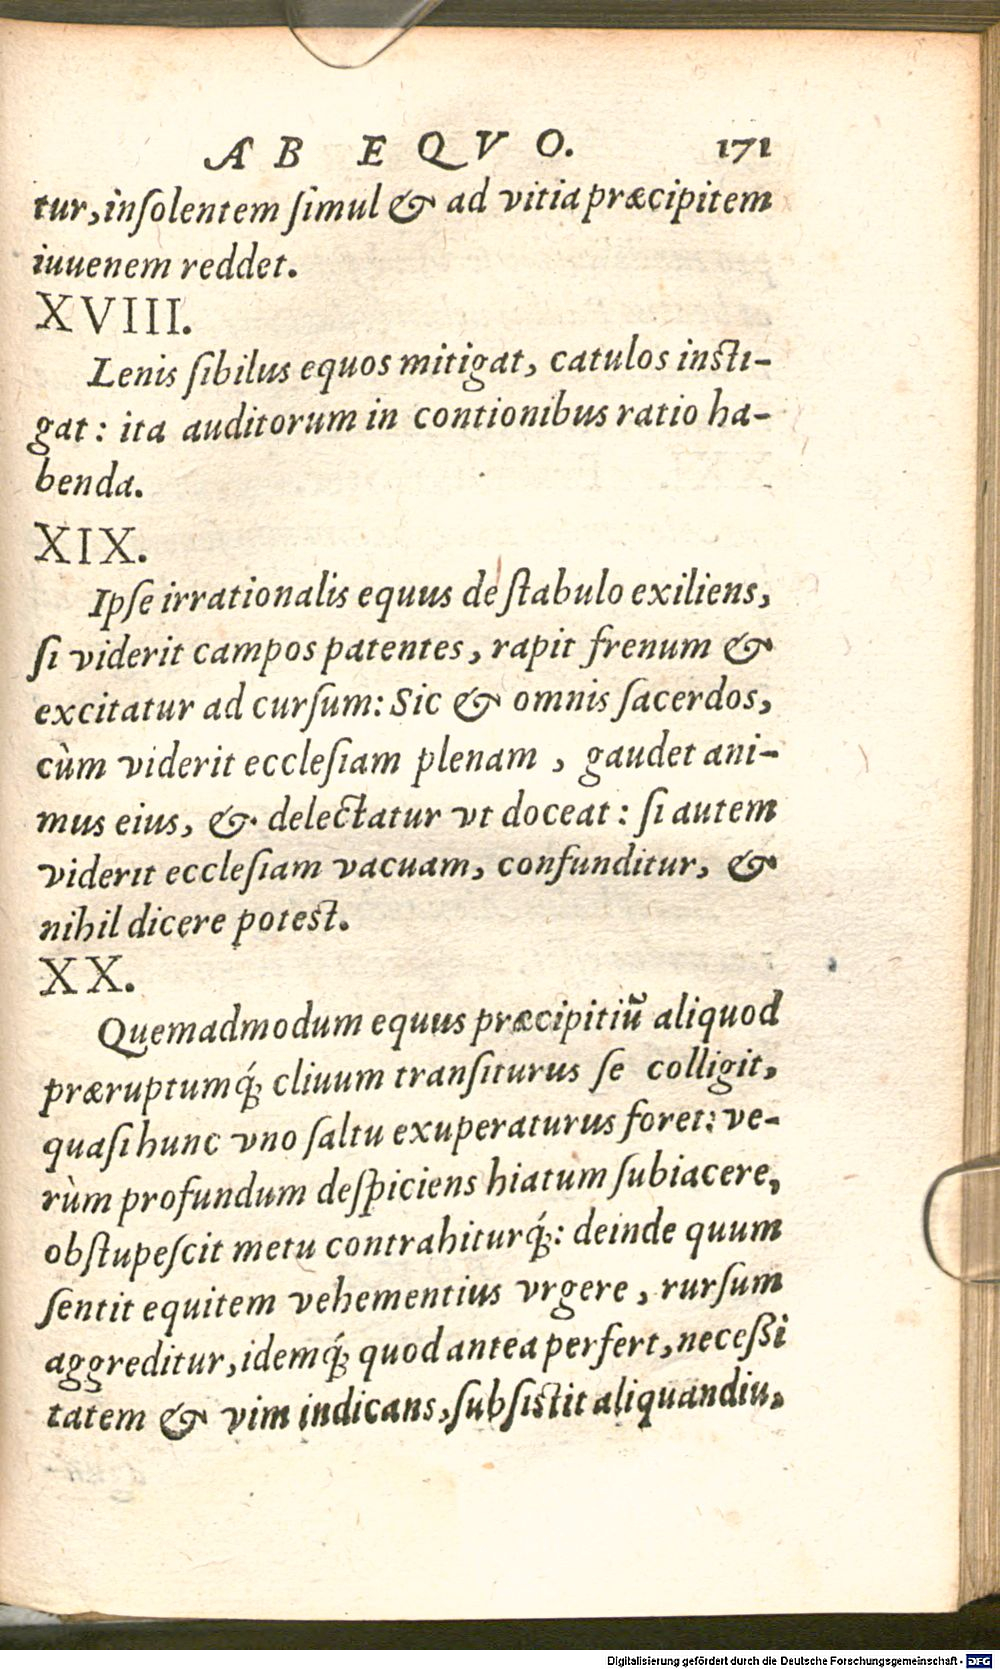 AB EQVO. 171
tur, inſolentem ſimul & ad vitia præcipitem
iuuenem reddet.
XVIII.
Lenis ſibilus equos mitigat, catulos inſti-
gat: ita auditorum in contionibus ratio ha-
benda.
XIX.
Ipſe irrationalis equus de ſtabulo exiliens,
ſi viderit campos patentes, rapit frenum &
excitatur ad curſum: Sic & omnis ſacerdos,
cùm viderit eccleſiam plenam, gaudet ani-
mus eius, & delectatur vt doceat: ſi autem
viderit eccleſiam vacuam, confunditur, &
nihil dicere poteſt.
XX.
Quemadmodum equus præcipitiū aliquod
præruptumq́; cliuum tranſiturus ſe colligit,
quaſi hunc vno ſaltu exuperaturus foret: ve-
rùm profundum deſpiciens hiatum ſubiacere,
obſtupeſcit metu contrahiturq́;: deinde quum
ſentit equitem vehementius vrgere, rurſum
aggreditur, idemq́; quod antea perfert, neceßi
tatem & vim indicans, ſubſiſtit aliquandiu,
Digitalisierung gefördert durch die Deutsche Forschungsgemeinschaft - DFG